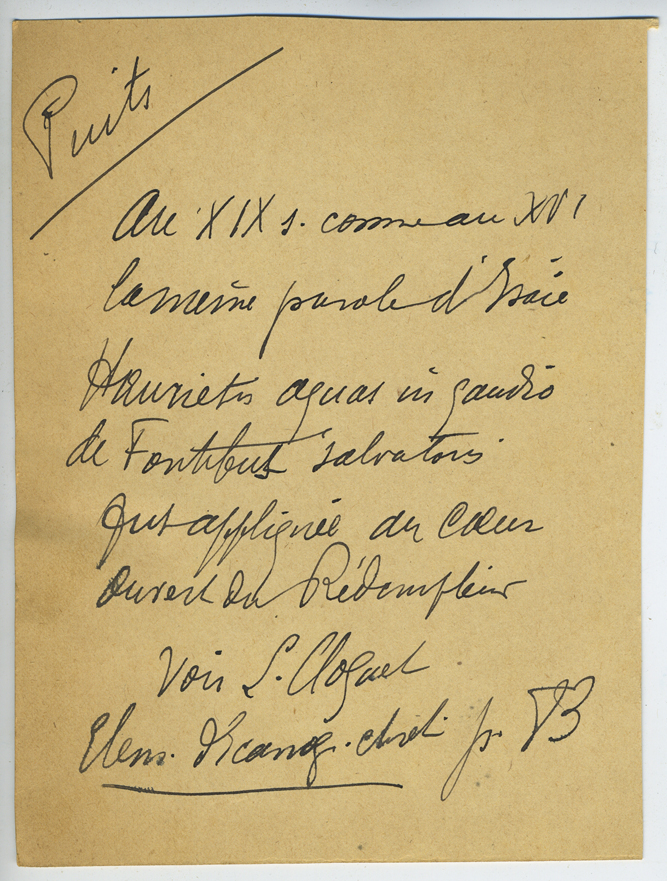 Puits
Au XIX s. comme au XVI
la même parole d'Isaïe
Haurietis aquas in gaudio
de Fontibus Salvatoris
fut appliquée au Cœur
ouvert du Rédempteur
Voir L. Cloquet
Elem. d'Icanog. chret. p.